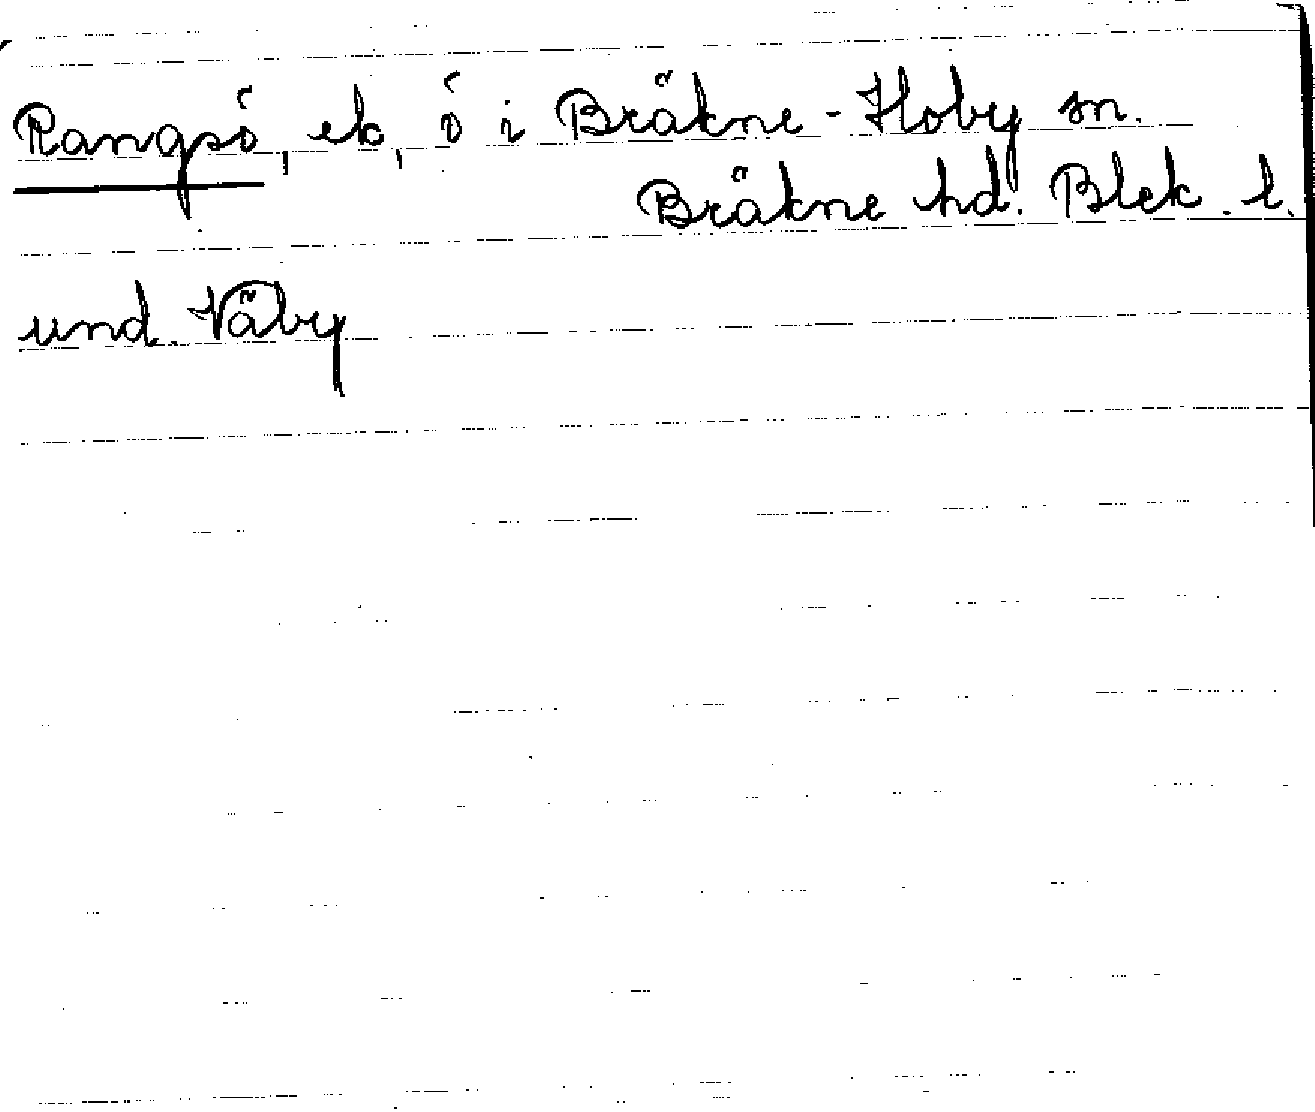 Rangsö, eb, ö i Bräkne-Hoby sn.
Bräkne hd. Blek. l.
und. Väby